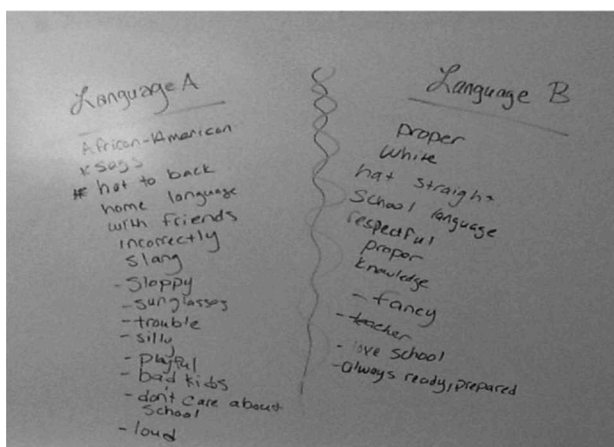 Language A
African-American
sags
hat to back
home language
with friends
incorrectly
slang
- Sloppy
- sunglasses
- trouble
- silly
- playful
- bad kids
- don't care about
school
- loud
Language B
proper
White
hat straight
School language
respectful
proper
Knowledge
- fancy
- teacher
- love school
- always ready, prepared